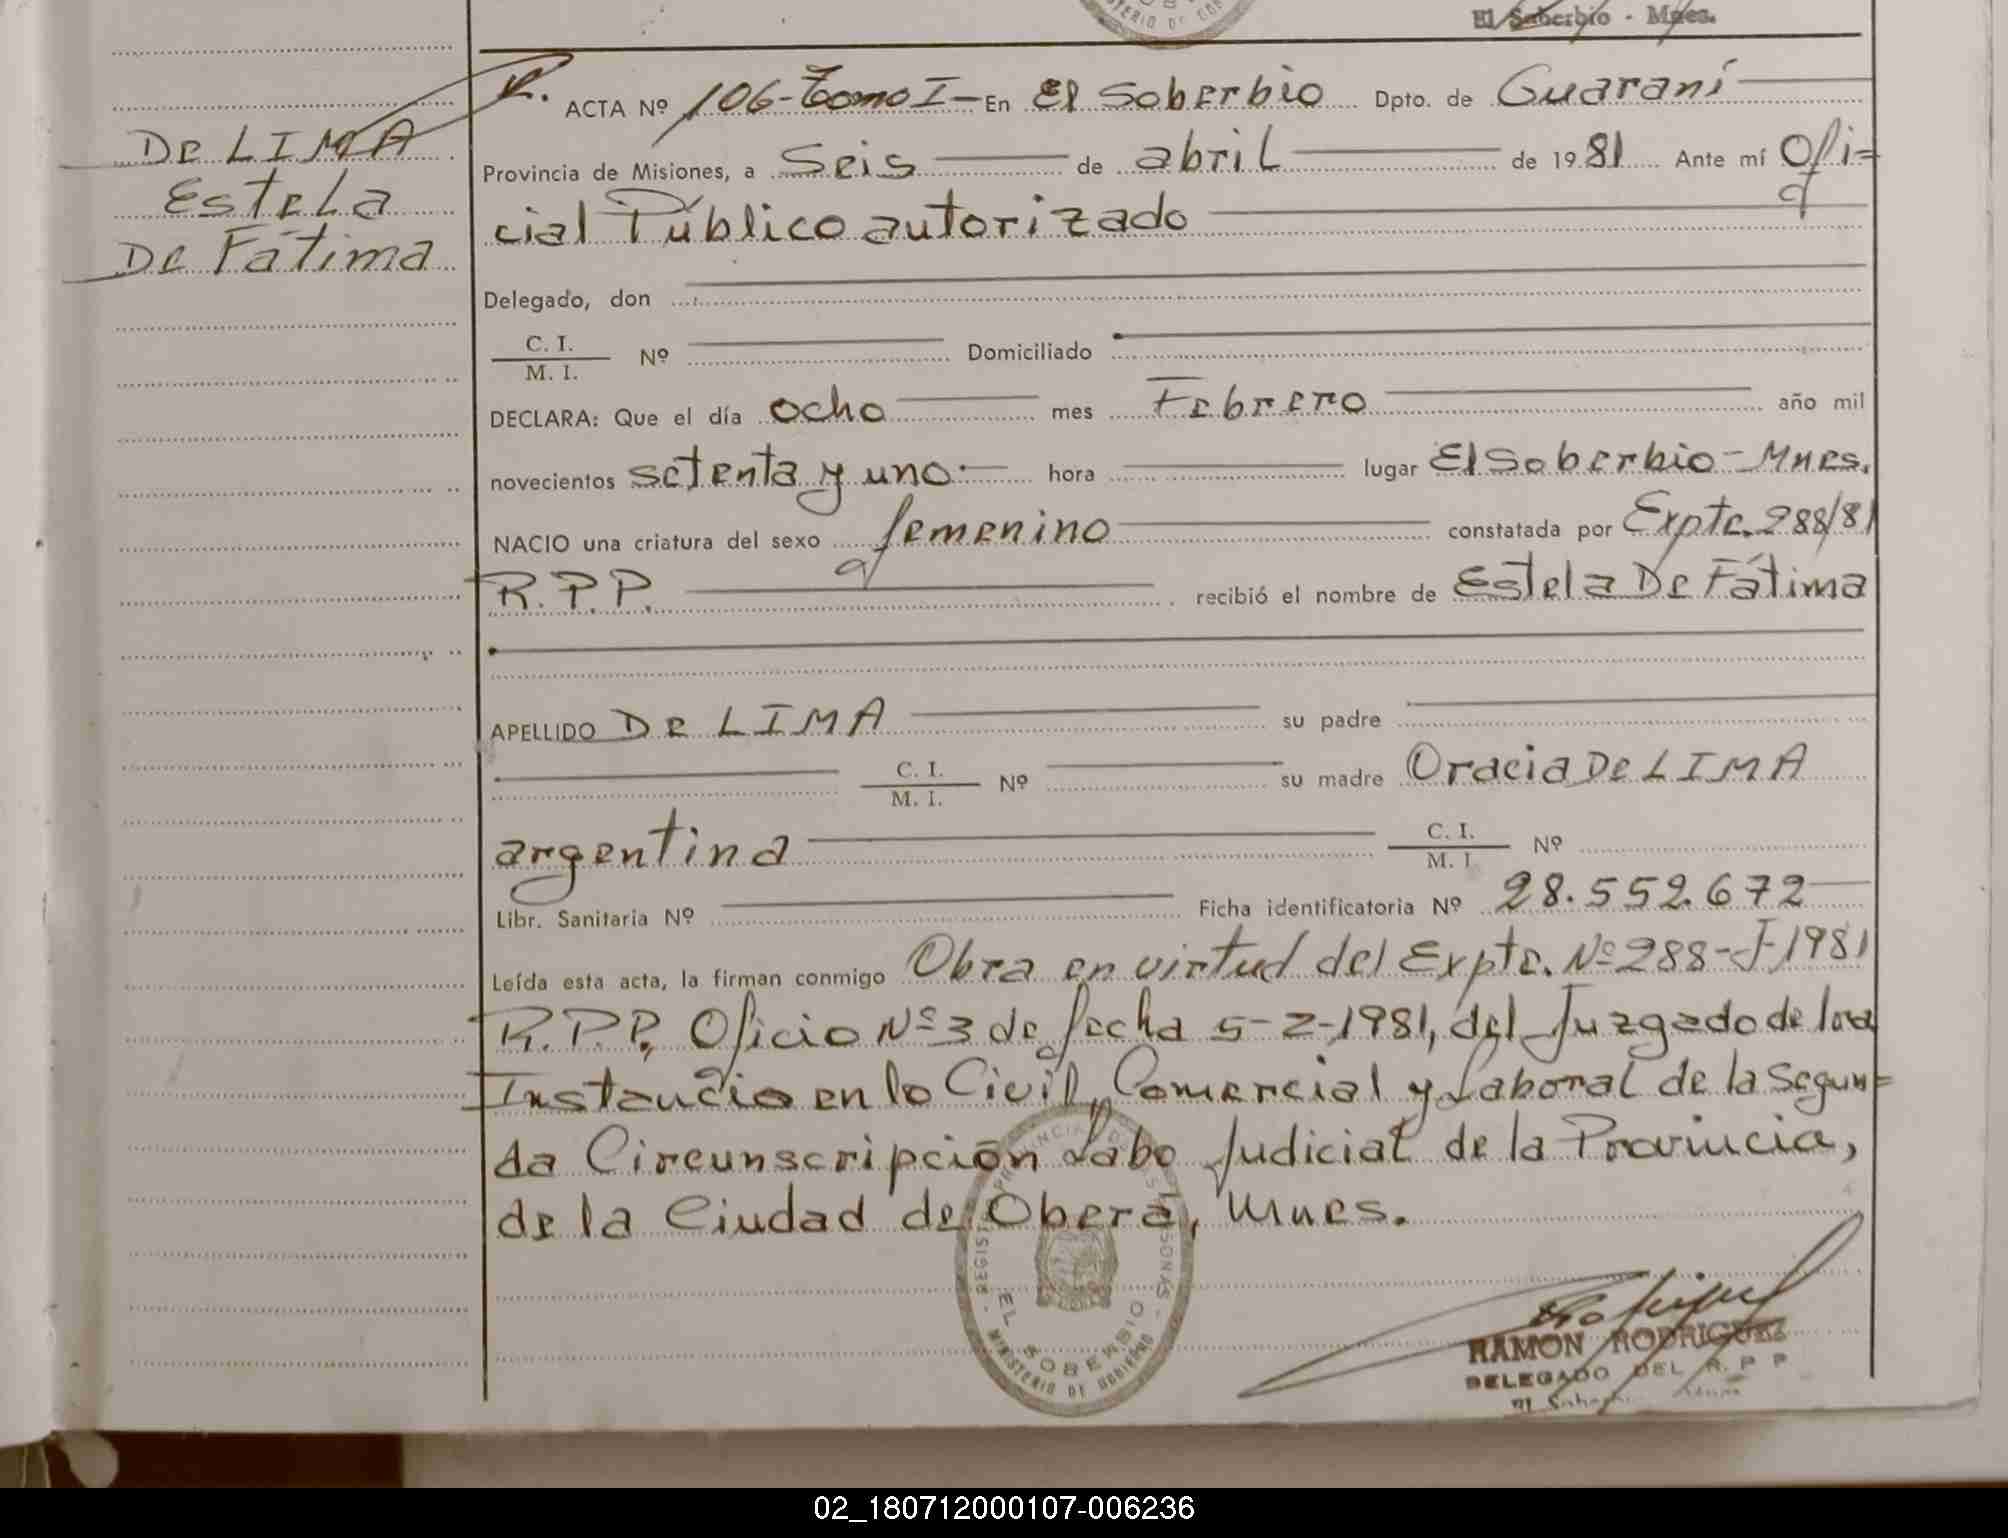 El Soberbio - Mnes.
R. ACTA Nº 106-Tomo I- En El Soberbio Dpto. de Guaraní
De LIMA
Estela
De Fátima
Provincia de Misiones, a Seis de abril de 1981 Ante mí Ofi=
cial Público autorizado
Delegado, don
C. I.
M. I. Nº Domiciliado
DECLARA: Que el día ocho mes Febrero año mil
novecientos setenta y uno hora lugar El Soberbio-Mnes.
NACIO una criatura del sexo femenino constatada por Expte. 288/81
R.P.P. recibió el nombre de Estela De Fátima
APELLIDO De LIMA su padre
C. I.
M. I. Nº su madre Oracia De LIMA
argentina C. I.
M. I. Nº
Libr. Sanitaria Nº Ficha identificatoria Nº 28.552.672
Leída esta acta, la firman conmigo Obra en virtud del Expte. Nº 288-J-1981
R.P.P., Oficio Nº 3 de fecha 5-2-1981, del Juzgado de 1ra
Instancia en lo Civil, Comercial y Laboral de la Segun=
da Circunscripción Labo Judicial de la Provincia,
de la Ciudad de Oberá, Mnes.
EL SOBERBIO
MINISTERIO DE GOBIERNO
RAMON RODRIGUEZ
DELEGADO DEL R. P. P
02_180712000107-006236